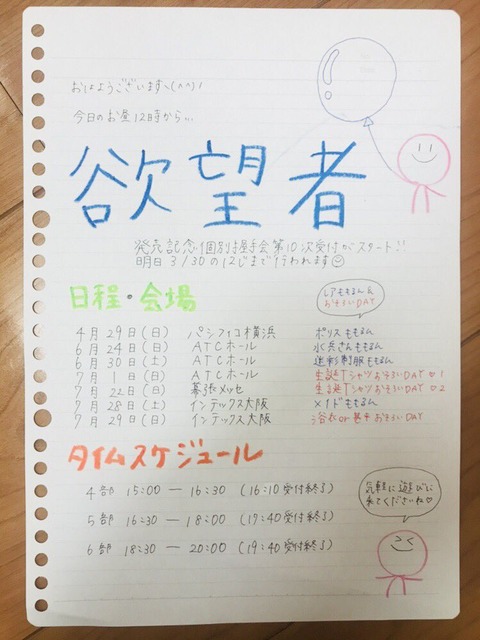 おはようございますヽ(^^)ノ
今日のお昼12時から...
欲望者
発売記念個別握手会第10次受付がスタート!!
明日3/30の12じまで行われます☺
日程・会場
レアももるん&
おそろいDAY
4月29日(日) パシフィコ横浜 ポリスももるん
6月24日(日) ATCホール 水兵さんももるん
6月30日(土) ATCホール 進刺制服ももるん
7月1日(日) ATCホール 生誕TシャツおそろいDAY♡1
7月22日(日) 幕張メッセ 生誕TシャツおそろいDAY♡2
7月28日(土) インテックス大阪 メイドももるん
7月29日(日) インテックス大阪 浴衣or甚平おそろいDAY
タイムスケジュール
4部 15:00 ― 16:30 (16:10受付終了)
5部 16:30 ― 18:00 (17:40受付終了)
6部 18:30 ― 20:00 (19:40受付終了)
気軽に遊びに
来てくださいね♡